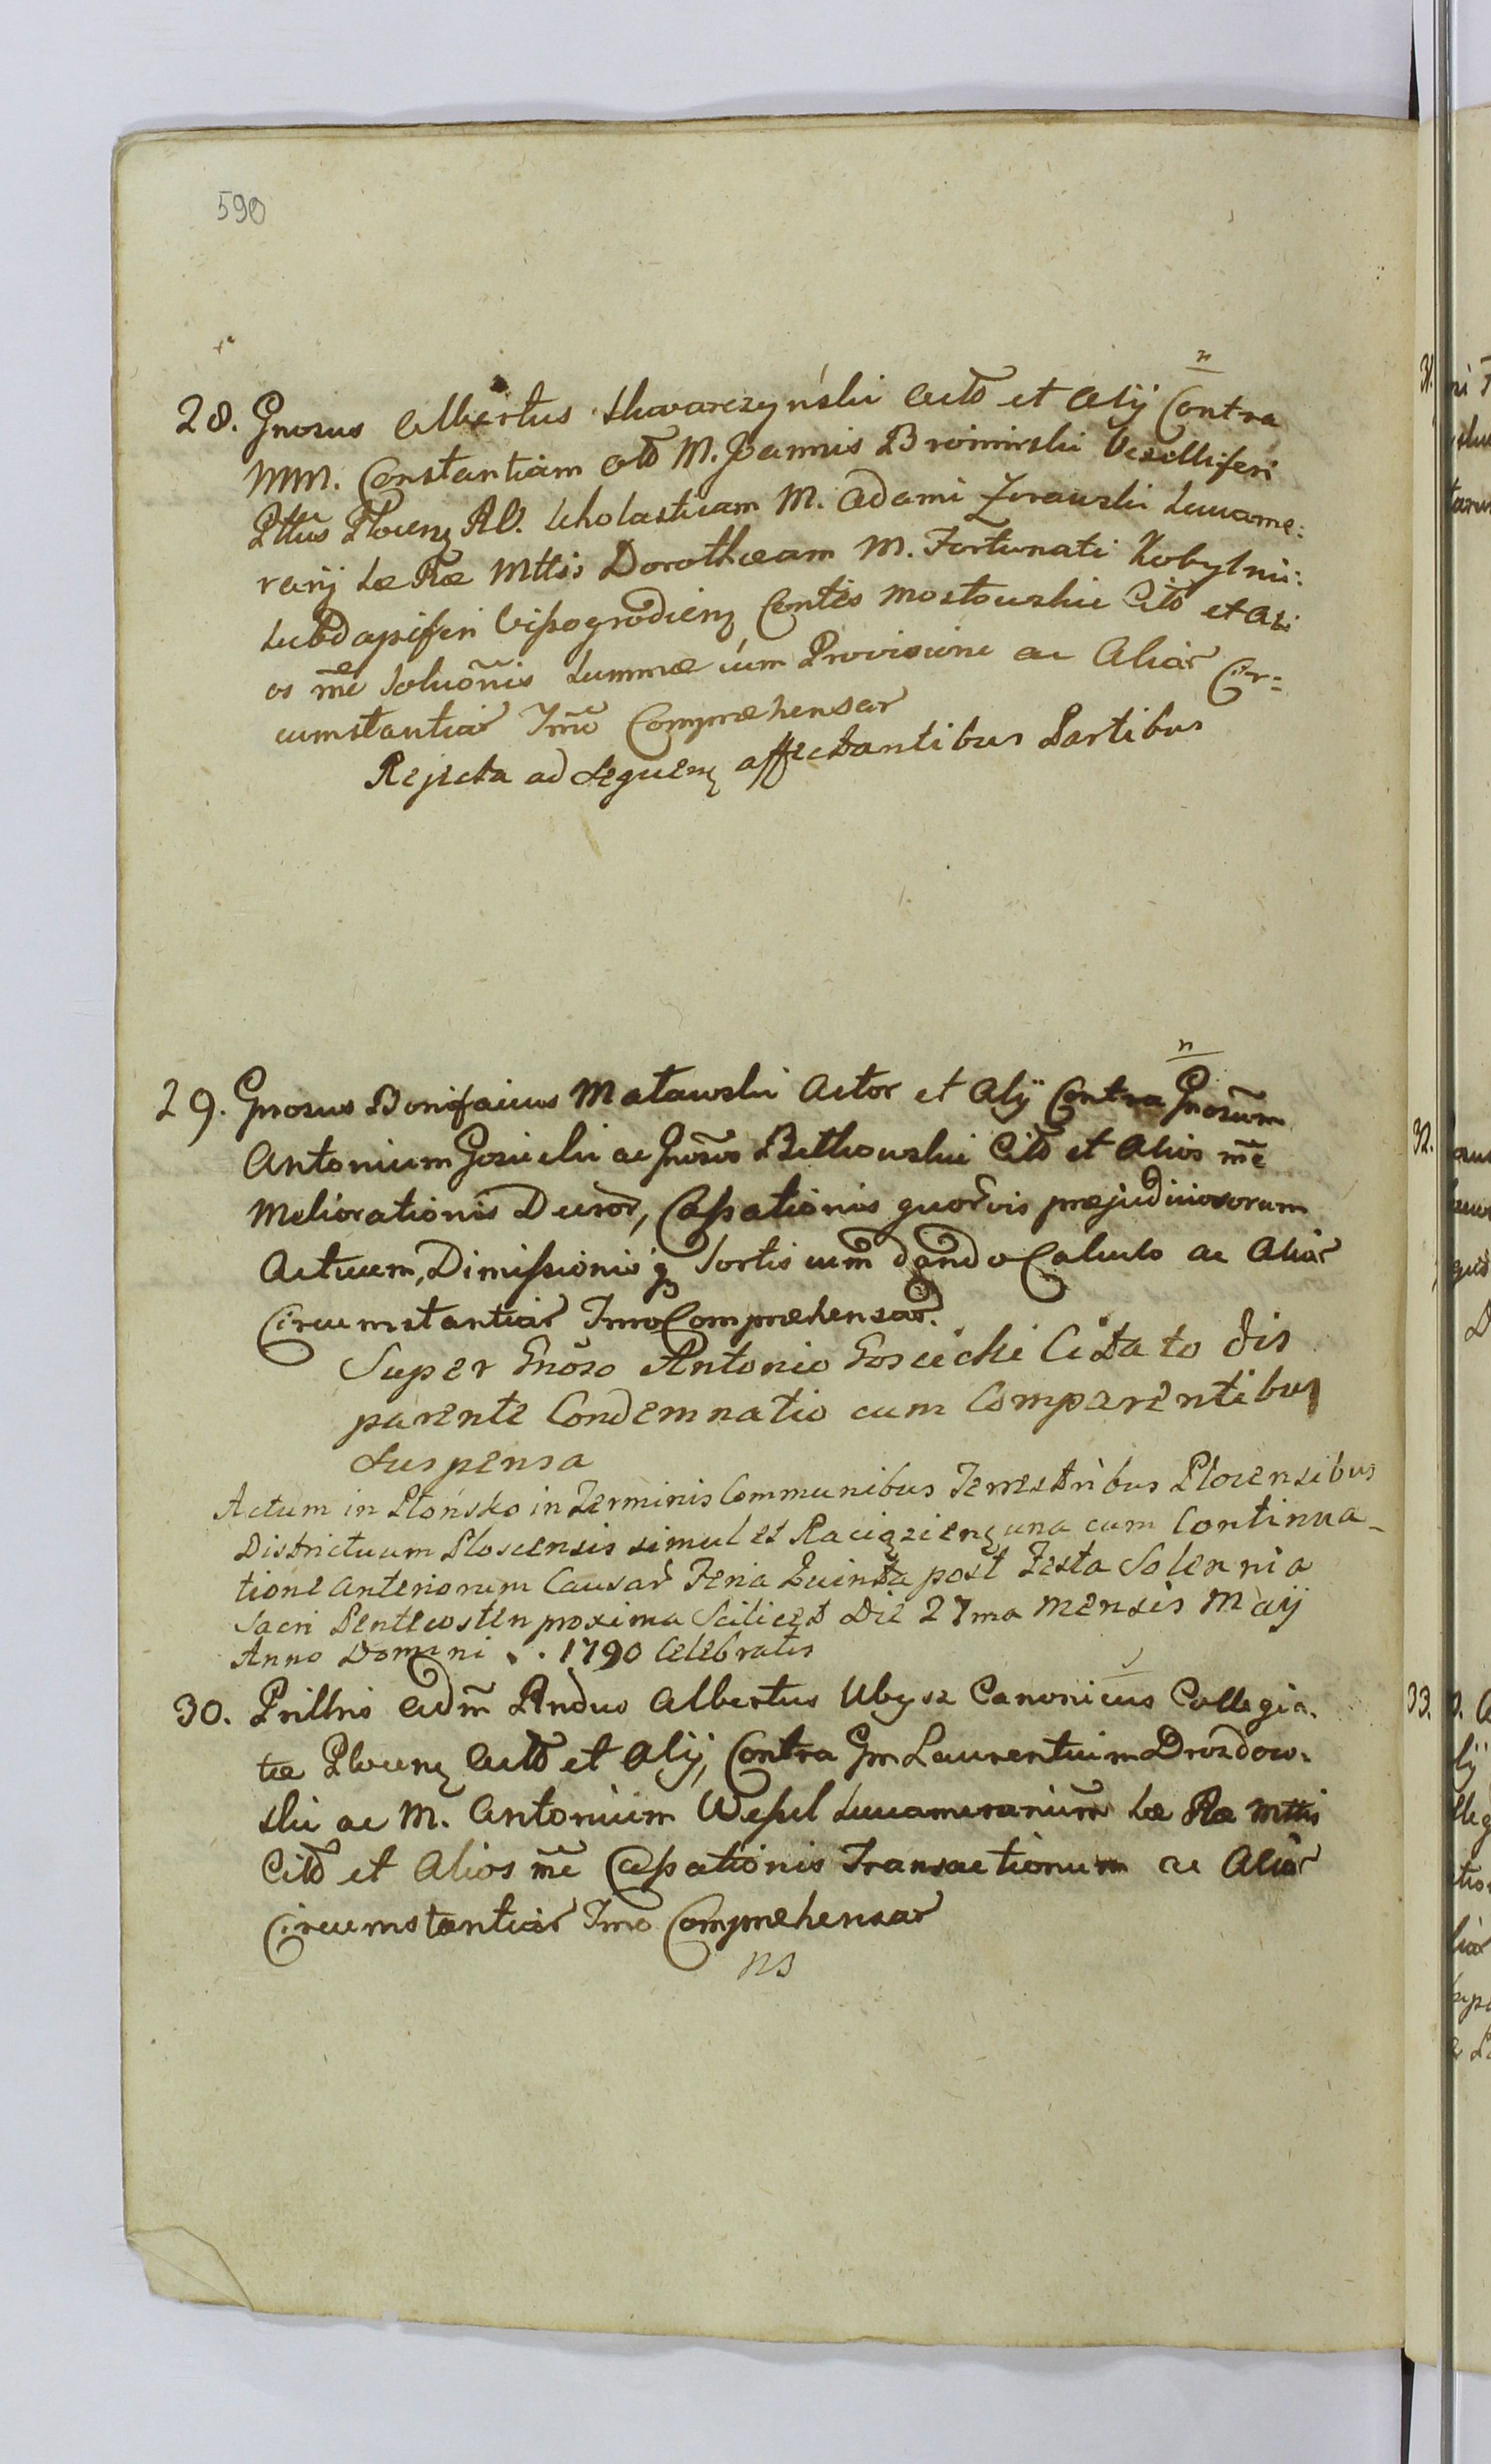 590
n
28. Gnosus Albertus Skwarczyński Acto et Alij Contra
MM. Constantiam olo M. Joannis Broiminski Vexilliferi
Plttus Plocenȝ RD. Scholasticam M. Adami Zurawski Succame:
rarij Sae Rae Mttis Dorotheam M. Fortunati Kobylnic:
Subdapiferi Vissogrodienȝ Contes Mostowskie Cito et Ali
os mẽ Soluõnis Summæ cum Provisione ac Aliar Cir=
cumstantiar Jmo Comprehensar
Rejecta ad Sequenȝ affectantibus Partibus
n
29. Gnosus Bonifacius Matawski Actor et Alij Contra Gnosum
Antonium Gosicki ac Gnosos Betkowskie Cito et Alios mẽ
Meliorationis Decror, Cassationis quorvis præjudiciosorum
Actuum, Dimissionis q Sortis cum dando Calculo ac Aliar
Circumstantiar Jmo Comprehensar.
Super Gnõso Antonio Gosicki Citato dis
parente Condemnatio cum Comparentibus
Suspensa
Actum in Płońsko in Terminis Communibus Terrestribus Plocensibus
Districtuum Plocensis simul et Raciązienȝ una cum Continua-
tione anteriorum Causar Feria Quinta post Festa Solennia
Sacri Pentecosten proxima Scilicet Die 27ma Mensis Maij
Anno Domini . . 1790 Celebratis
30. Prilllris Adm Rndus Albertus Ubysz Canonicus Collegia.
tæ Plocenȝ Acto et Alij, Contra Gm Laurentium Drozdow.
ski ac M. Antonium Wessel Succamerarium Sae Rae Mttis
Cito et Alios mẽ Cassationis Transactionum ac Aliar
Circumstantiar Jmo Comprehensar
ns
31.
32.
33.